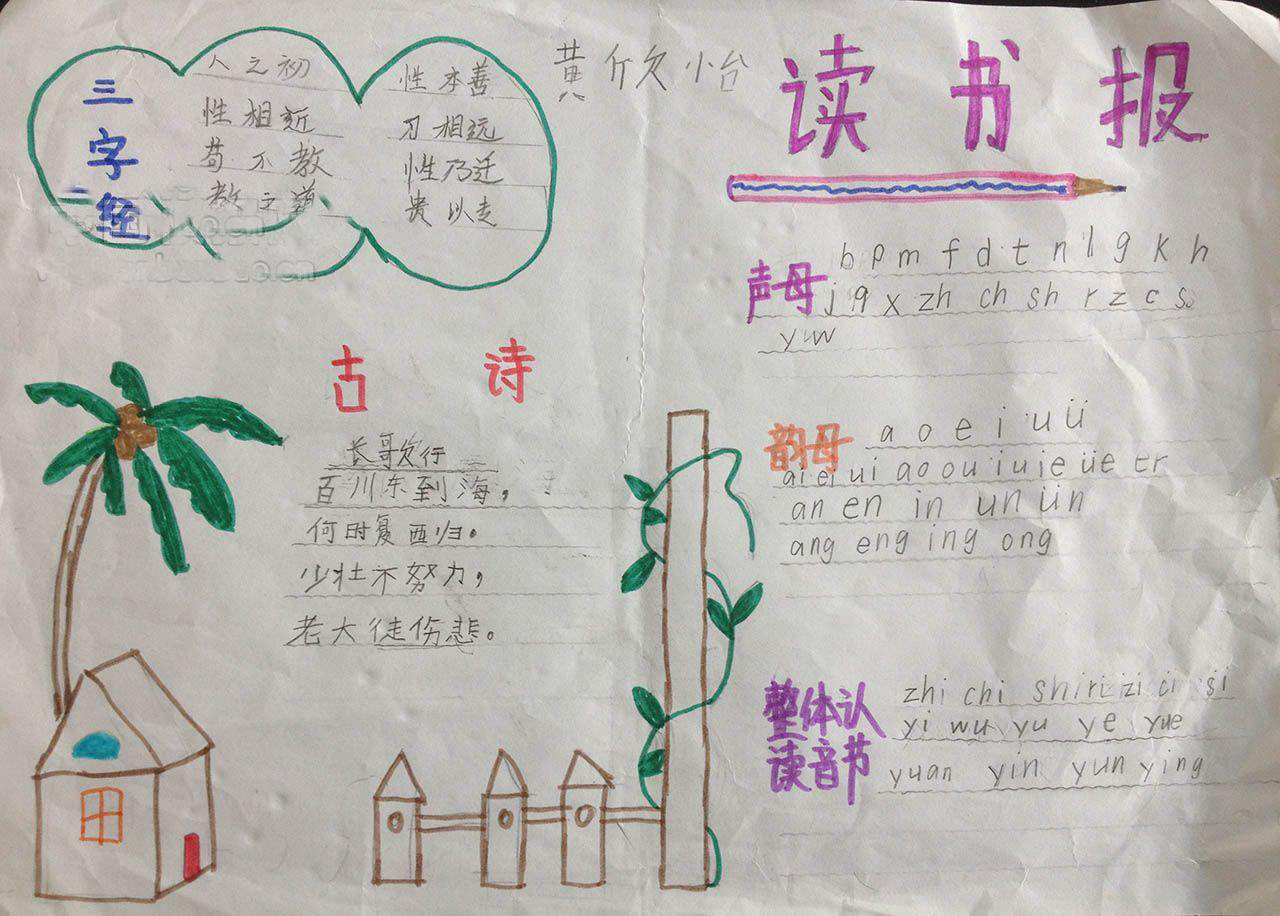 黄欣怡
读书报
三字经
人之初 性本善
性相近 习相远
苟不教 性乃迁
教之道 贵以走
声母
b p m f d t n l g k h
j q x zh ch sh r z c s
y w
古诗
长歌欠行
百川东到海,
何时复西归。
少壮不努力,
老大徒伤悲。
韵母
a o e i u ü
ai ei ui ao ou iu ie üe er
an en in un ün
ang eng ing ong
整体认
读音节
zhi chi shi ri zi ci si
yi wu yu ye yue
yuan yin yun ying